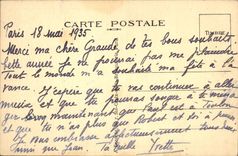 Paris 18 mai 1935
CARTE POSTALE
Merci ma chère Grande, de tes bons souhaits
cette année je ne pourrai pas me plaindre
Tout le monde m'a souhaité ma fête à la
J'espère que tu vas continuer à aller
mieux et que tu pourras songer à
maintenant que Paul est à Toulon
et que tu n'as plus que Robert et
Je vous embrasse affectueusement
ainsi que Jean. Ta Yvette